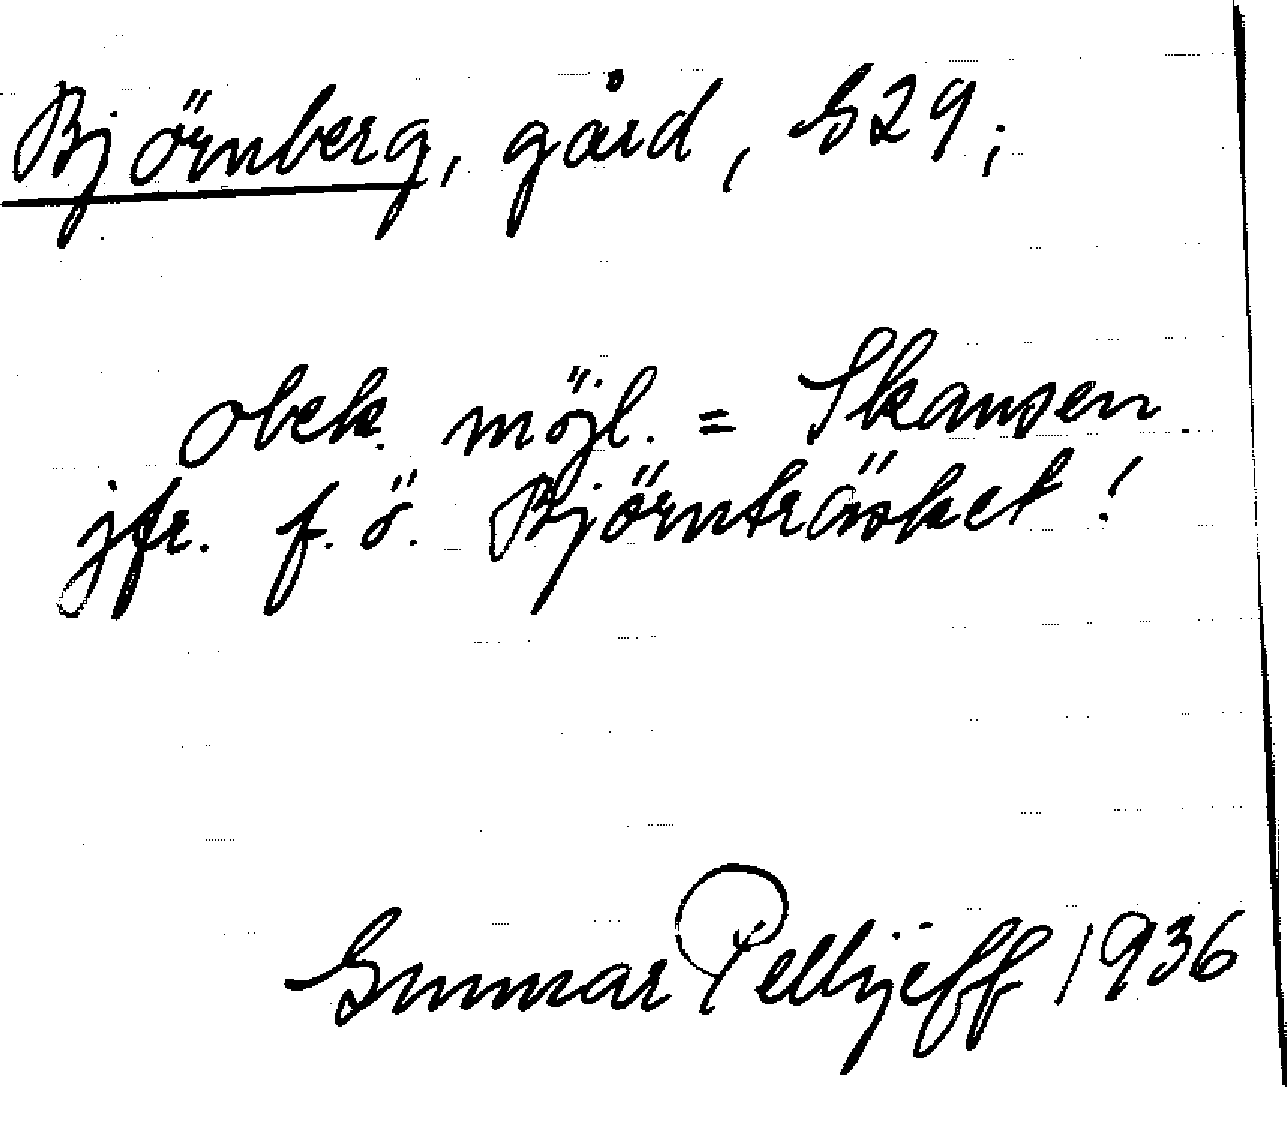 Björnberg, gård, G29;
obek. möjl. = Skansen.
jfr. f. ö. Björnträsket!
Gunnar Pellijeff 1936